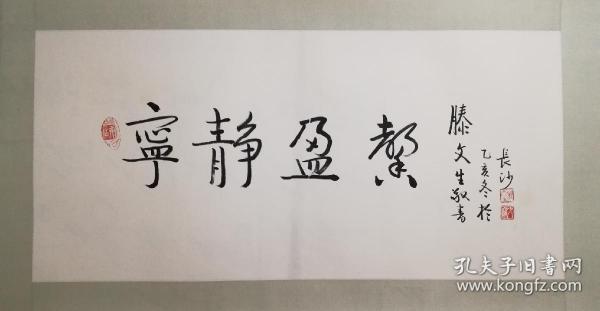 寧静盈馨
滕文生敬書
乙亥冬於
長沙
孔夫子旧書网
www.kongfz.com